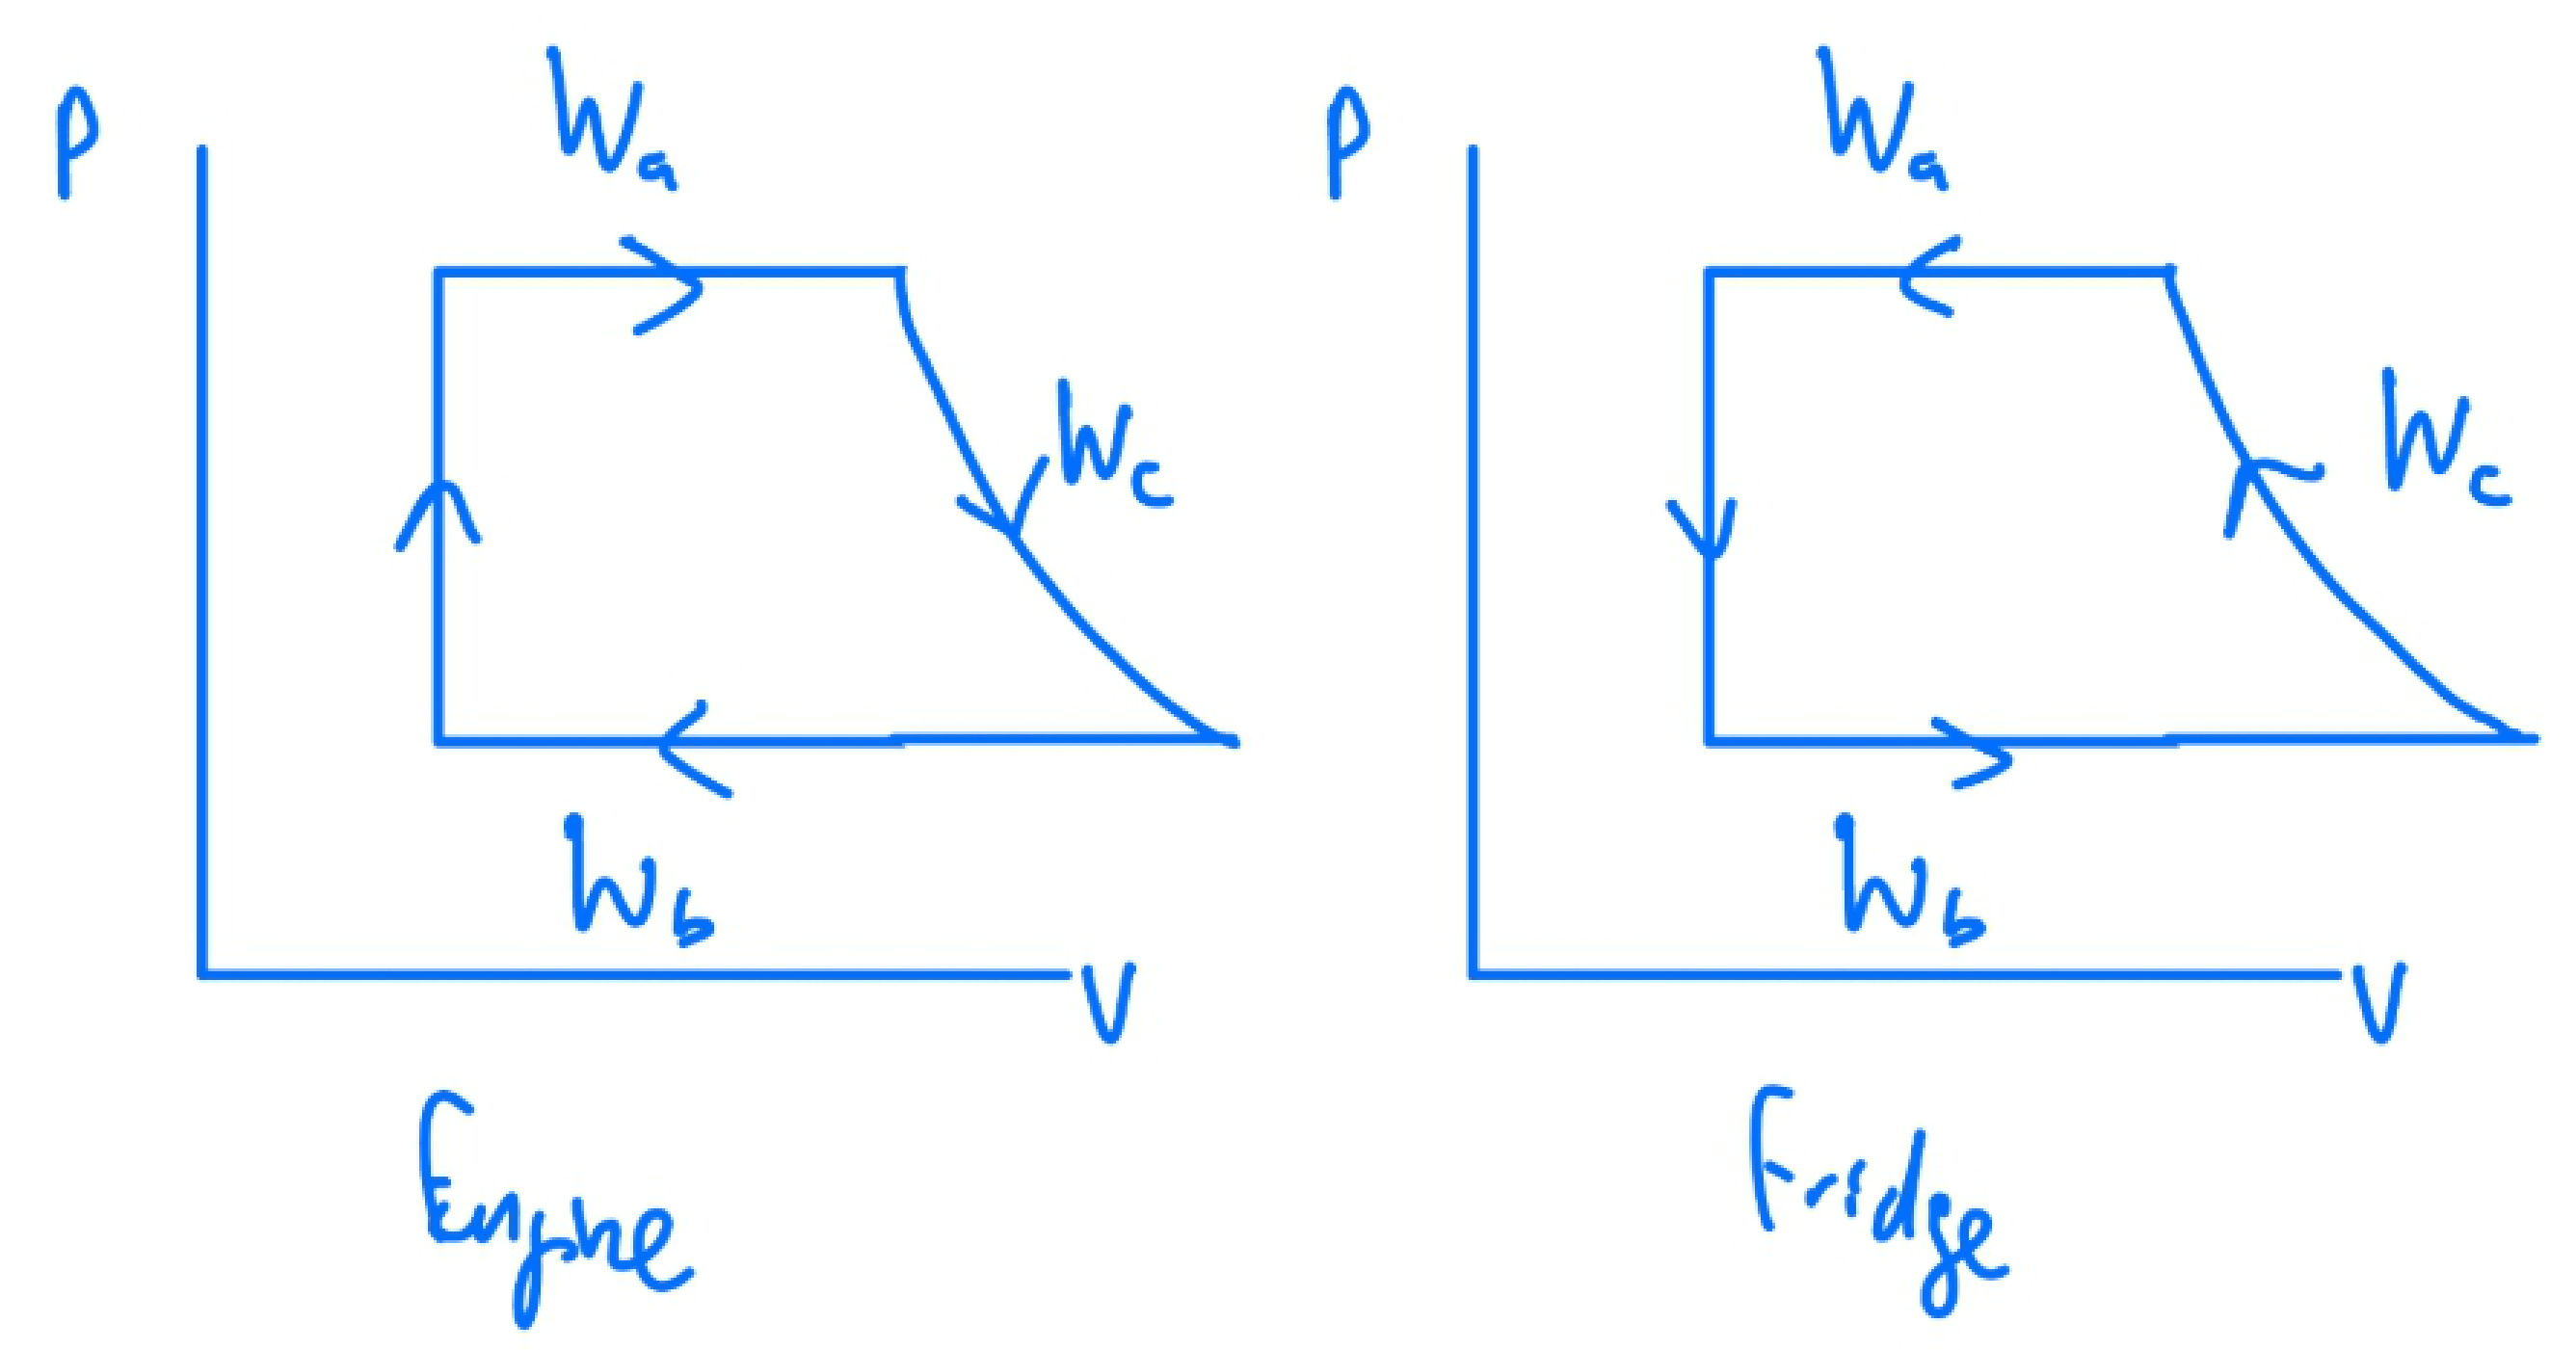 P
Wa
Wc
Wb
V
Engine
P
Wa
Wc
Wb
V
Fridge